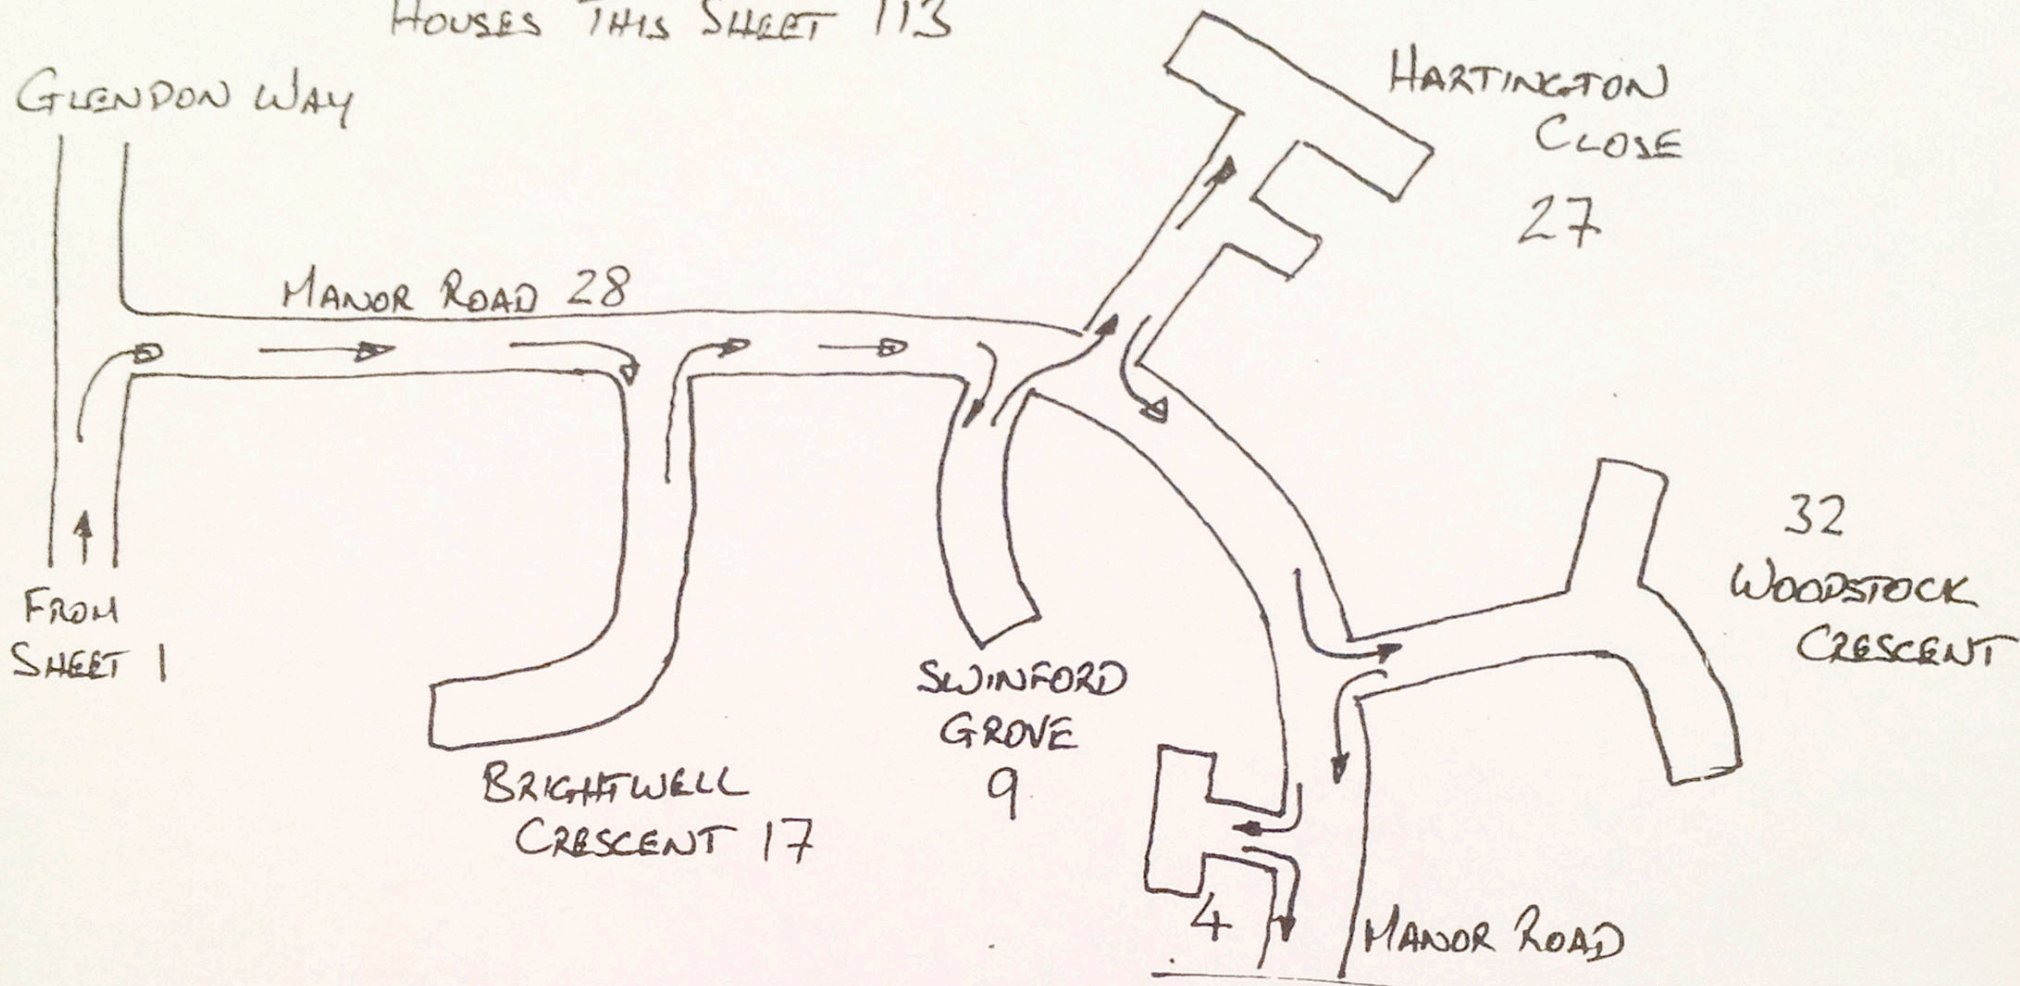 HOUSES THIS SHEET 113
GLENDON WAY
HARTINGTON
CLOSE
27
MANOR ROAD 28
32
WOODSTOCK
CRESCENT
FROM
SHEET 1
SWINFORD
GROVE
9
BRIGHTWELL
CRESCENT 17
4
MANOR ROAD